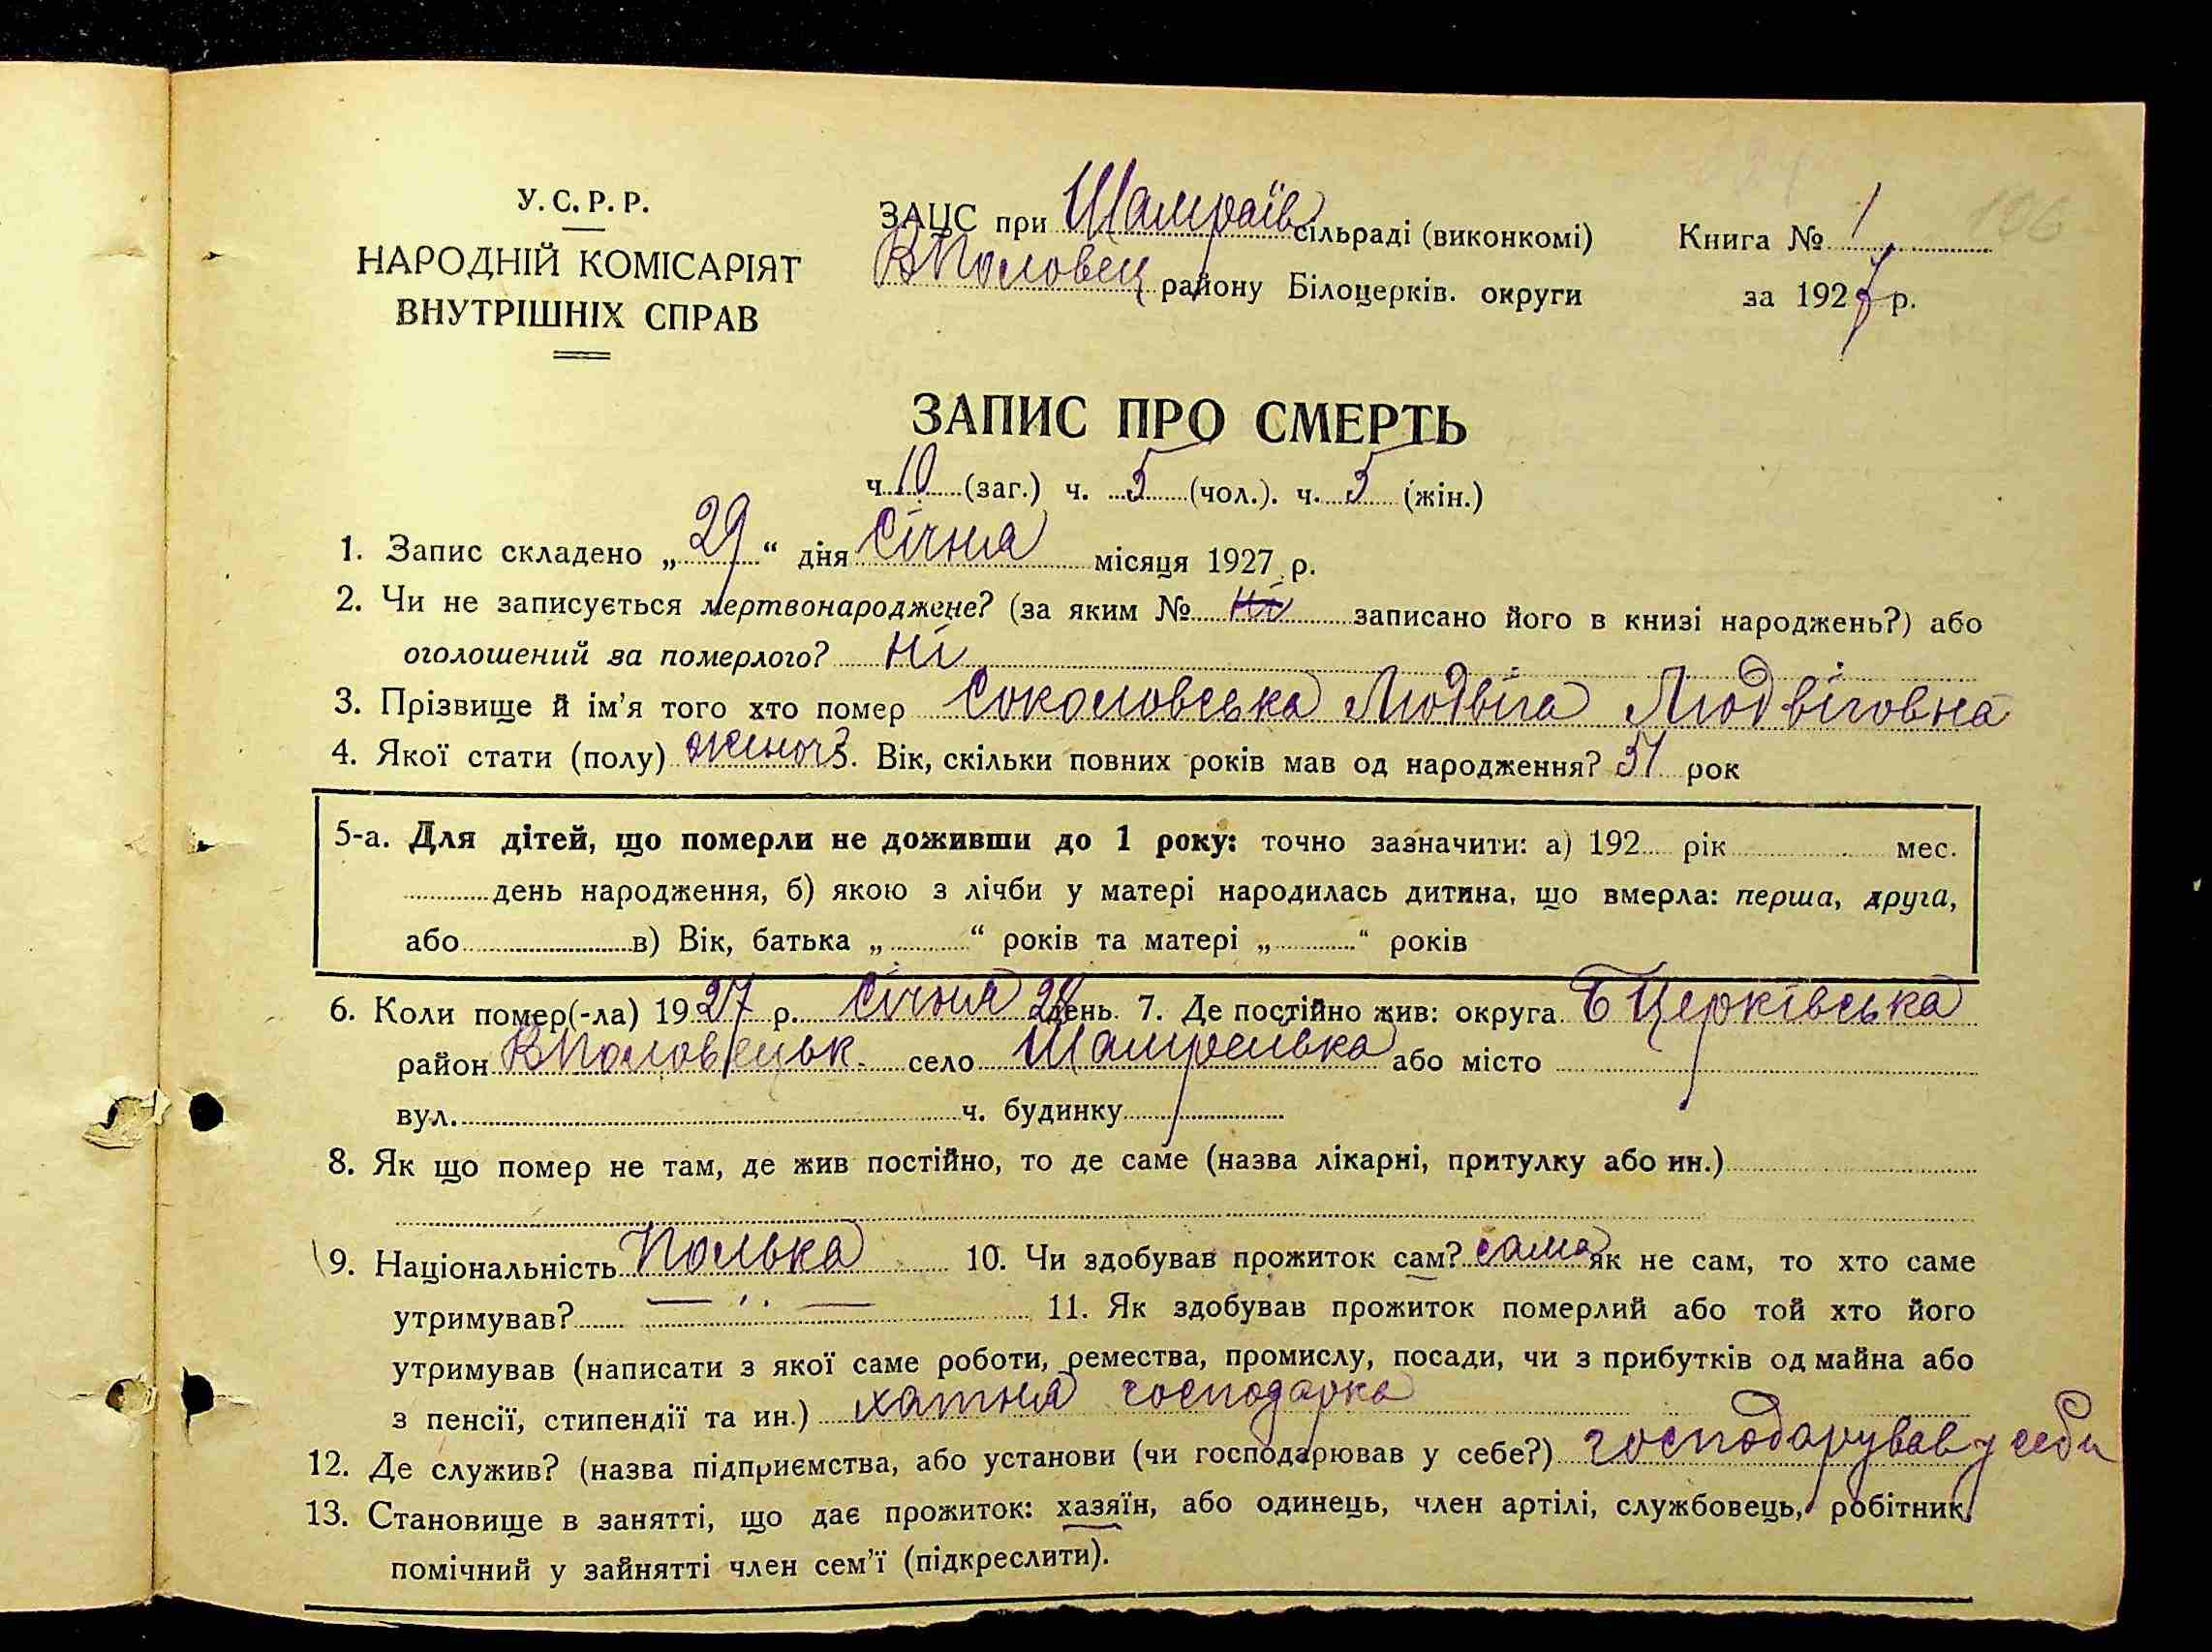 У. С. Р. Р.
НАРОДНІЙ КОМІСАРІЯТ
ВНУТРІШНІХ СПРАВ
ЗАЦС при Шамраїв сільраді (виконкомі)
ВПоловец району Білоцерків. округи
Книга № 1
за 1927 р.
ЗАПИС ПРО СМЕРТЬ
ч. 10 (заг.) ч. 5 (чол.). ч. 5 (жін.)
1. Запис складено „29“ дня Січня місяця 1927 р.
2. Чи не записується мертвонароджене? (за яким № ні записано його в книзі народжень?) або
оголошений за померлого? ні
3. Прізвище й ім'я того хто помер Соколовська Людвіга Людвіговна
4. Якої стати (полу) жіноч 5. Вік, скільки повних років мав од народження? 51 рок
5-а. Для дітей, що померли не доживши до 1 року: точно зазначити: а) 192 рік мес.
день народження, б) якою з лічби у матері народилась дитина, що вмерла: перша, друга,
або в) Вік, батька „ “ років та матері „ “ років
6. Коли помер(-ла) 1927 р. Січня 28 день. 7. Де постійно жив: округа БЦерківська
район ВПоловецьк. село Шамраївка або місто
вул. ч. будинку
8. Як що помер не там, де жив постійно, то де саме (назва лікарні, притулку або ин.)
9. Національність Полька 10. Чи здобував прожиток сам? сама як не сам, то хто саме
утримував? — ,, — 11. Як здобував прожиток померлий або той хто його
утримував (написати з якої саме роботи, ремества, промислу, посади, чи з прибутків од майна або
з пенсії, стипендії та ин.) хатня господарка
12. Де служив? (назва підприємства, або установи (чи господарював у себе?) господарував у себи
13. Становище в занятті, що дає прожиток: хазяїн, або одинець, член артілі, службовець, робітник,
помічний у зайнятті член сем'ї (підкреслити).